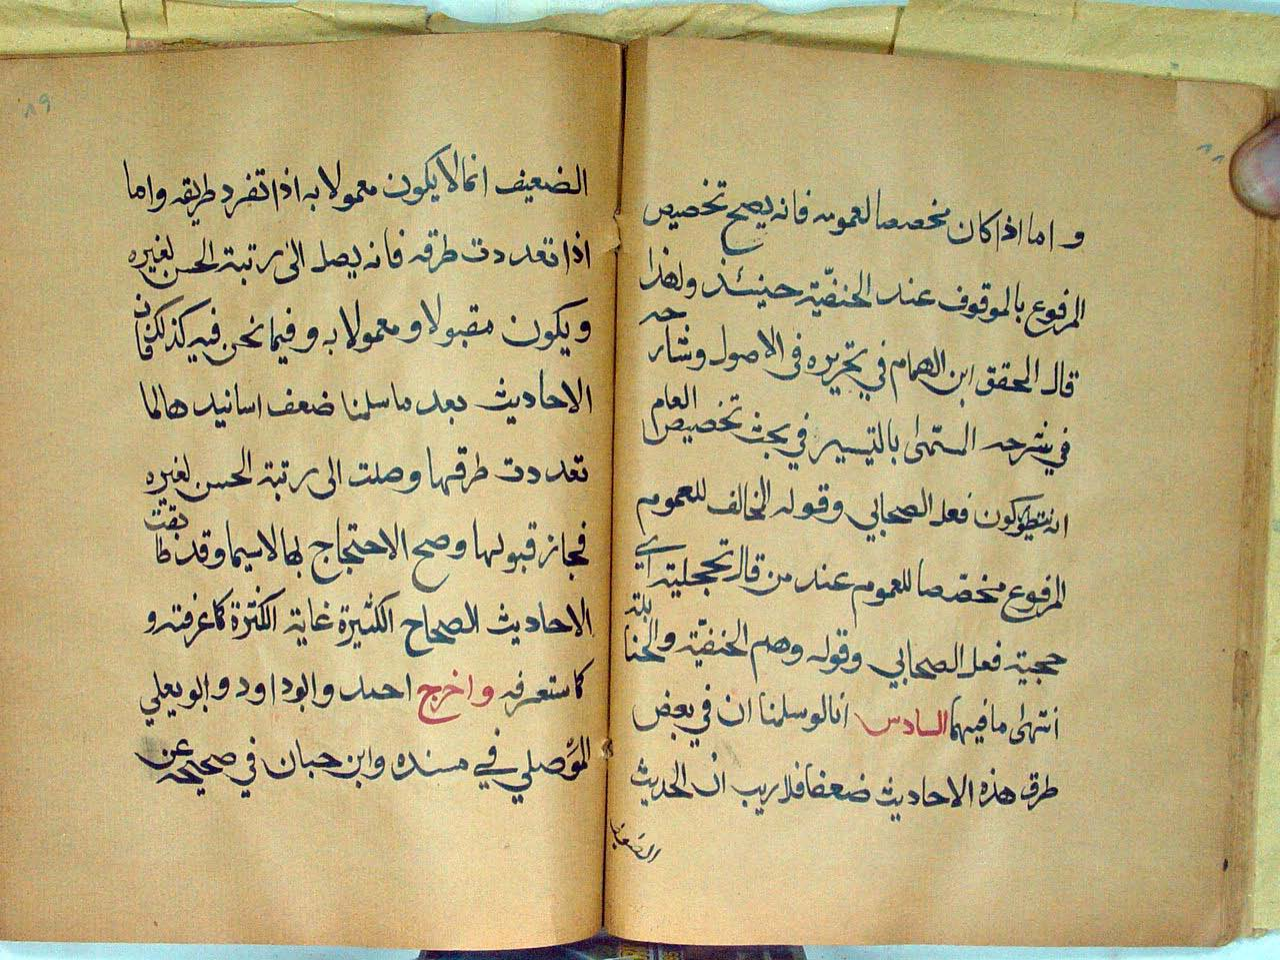 ٨٨
واما اذا كان مخصصا لعمومه فانه يصح تخصيص
المرفوع بالموقوف عند الحنفيّة حينئذ ولهذا
قال المحقق ابن الهمام في تحريره في الاصول وشارحه
في شرحه المسمّى بالتيسير في بحث تخصيص العام
يكون فعل الصحابي وقوله المخالف للعموم
المرفوع مخصّصا للعموم عند من قال بحجيته اي
حجية فعل الصحابي وقوله وهم الحنفيّة والحنابلة
انتهى ما فيهما السادس انا لو سلمنا ان في بعض
طرق هذه الاحاديث ضعفا فلا ريب انّ الحديث
الضعيف
٨٩
الضعيف انما لا يكون معمولا به اذا تفرد طريقه واما
اذا تعددت طرقه فانه يصل الى رتبة الحسن لغيره
ويكون مقبولا ومعمولا به وفيما نحن فيه كذلك فان
الاحاديث بعد ما سلمنا ضعف اسانيدها لما
تعددت طرقها وصلت الى رتبة الحسن لغيره
فجاز قبولها وصح الاحتجاج بها لاسيما وقد طابقت
الاحاديث الصحاح الكثيرة غاية الكثرة كما عرفته و
كما ستعرفه واخرج احمد وابو داود وابو يعلي
الموَّصلي في مسنده وابن حبان في صحيحه عن